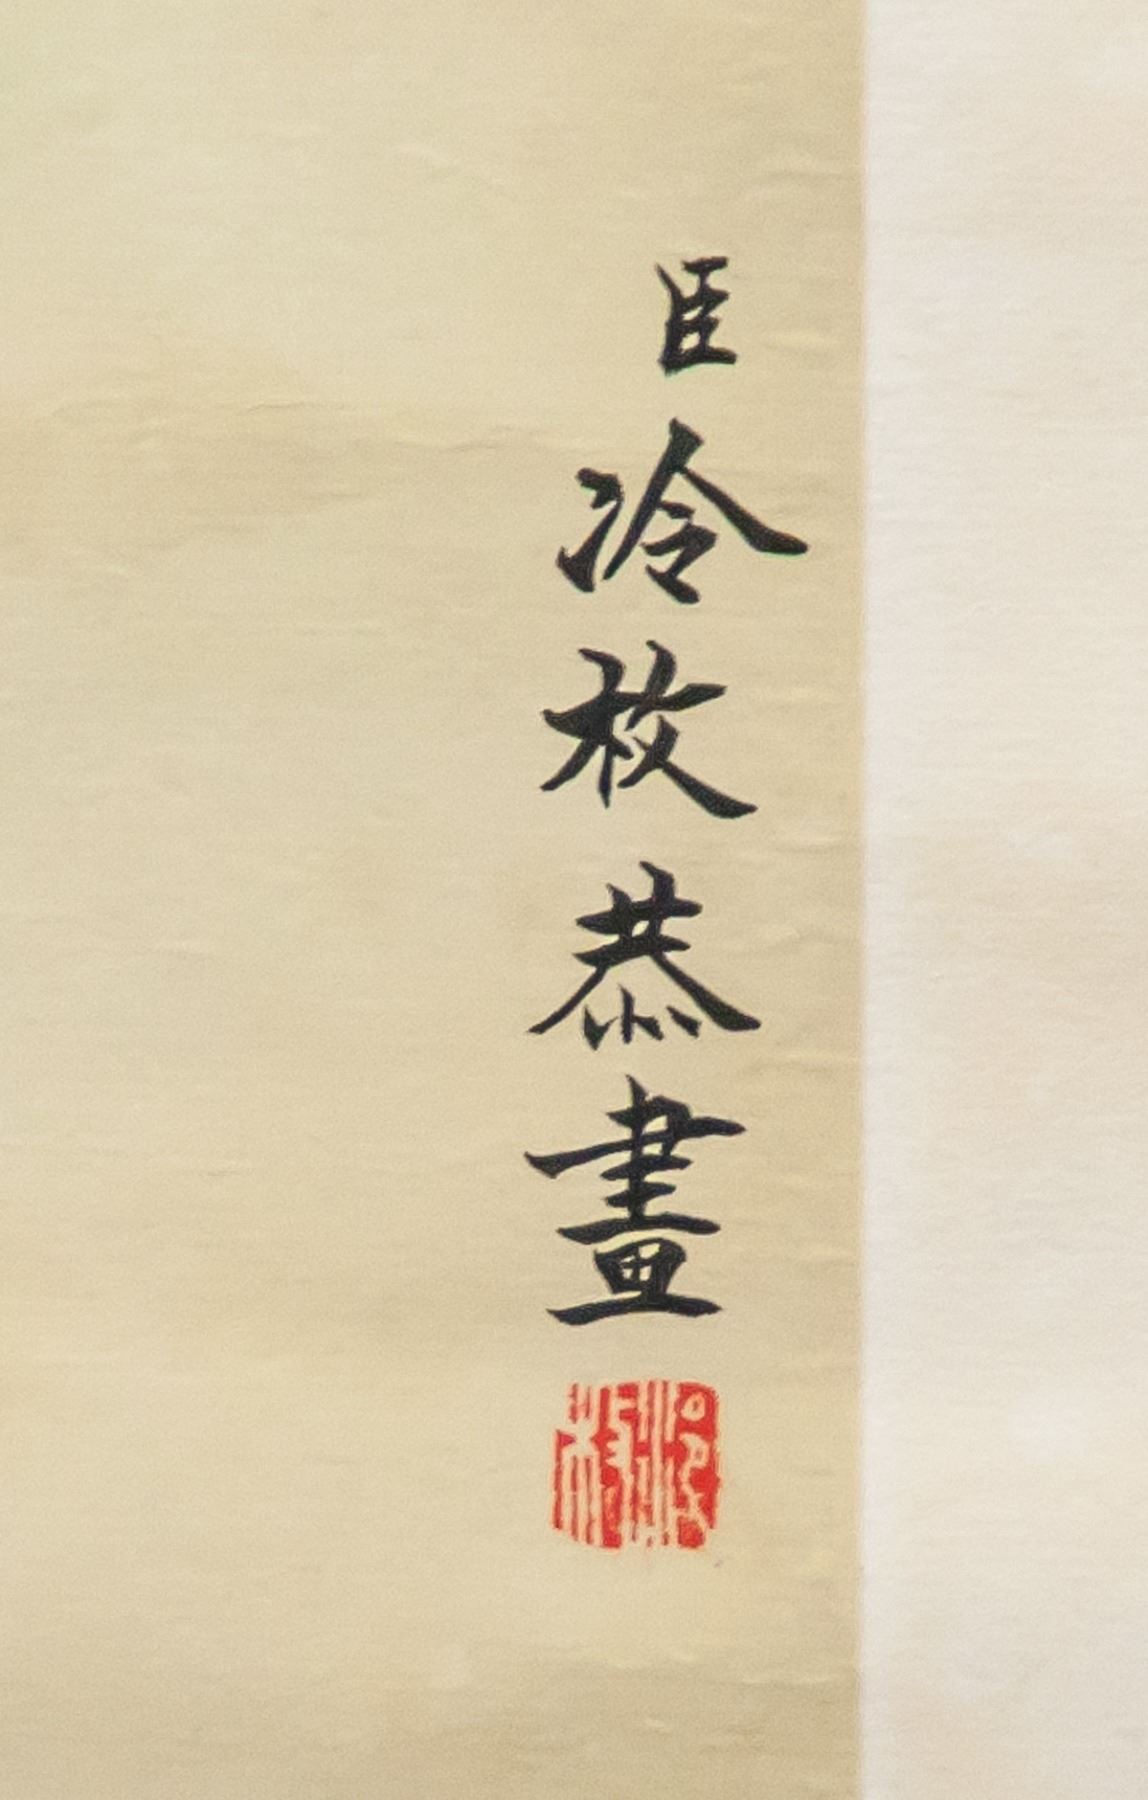 臣冷枚恭畫